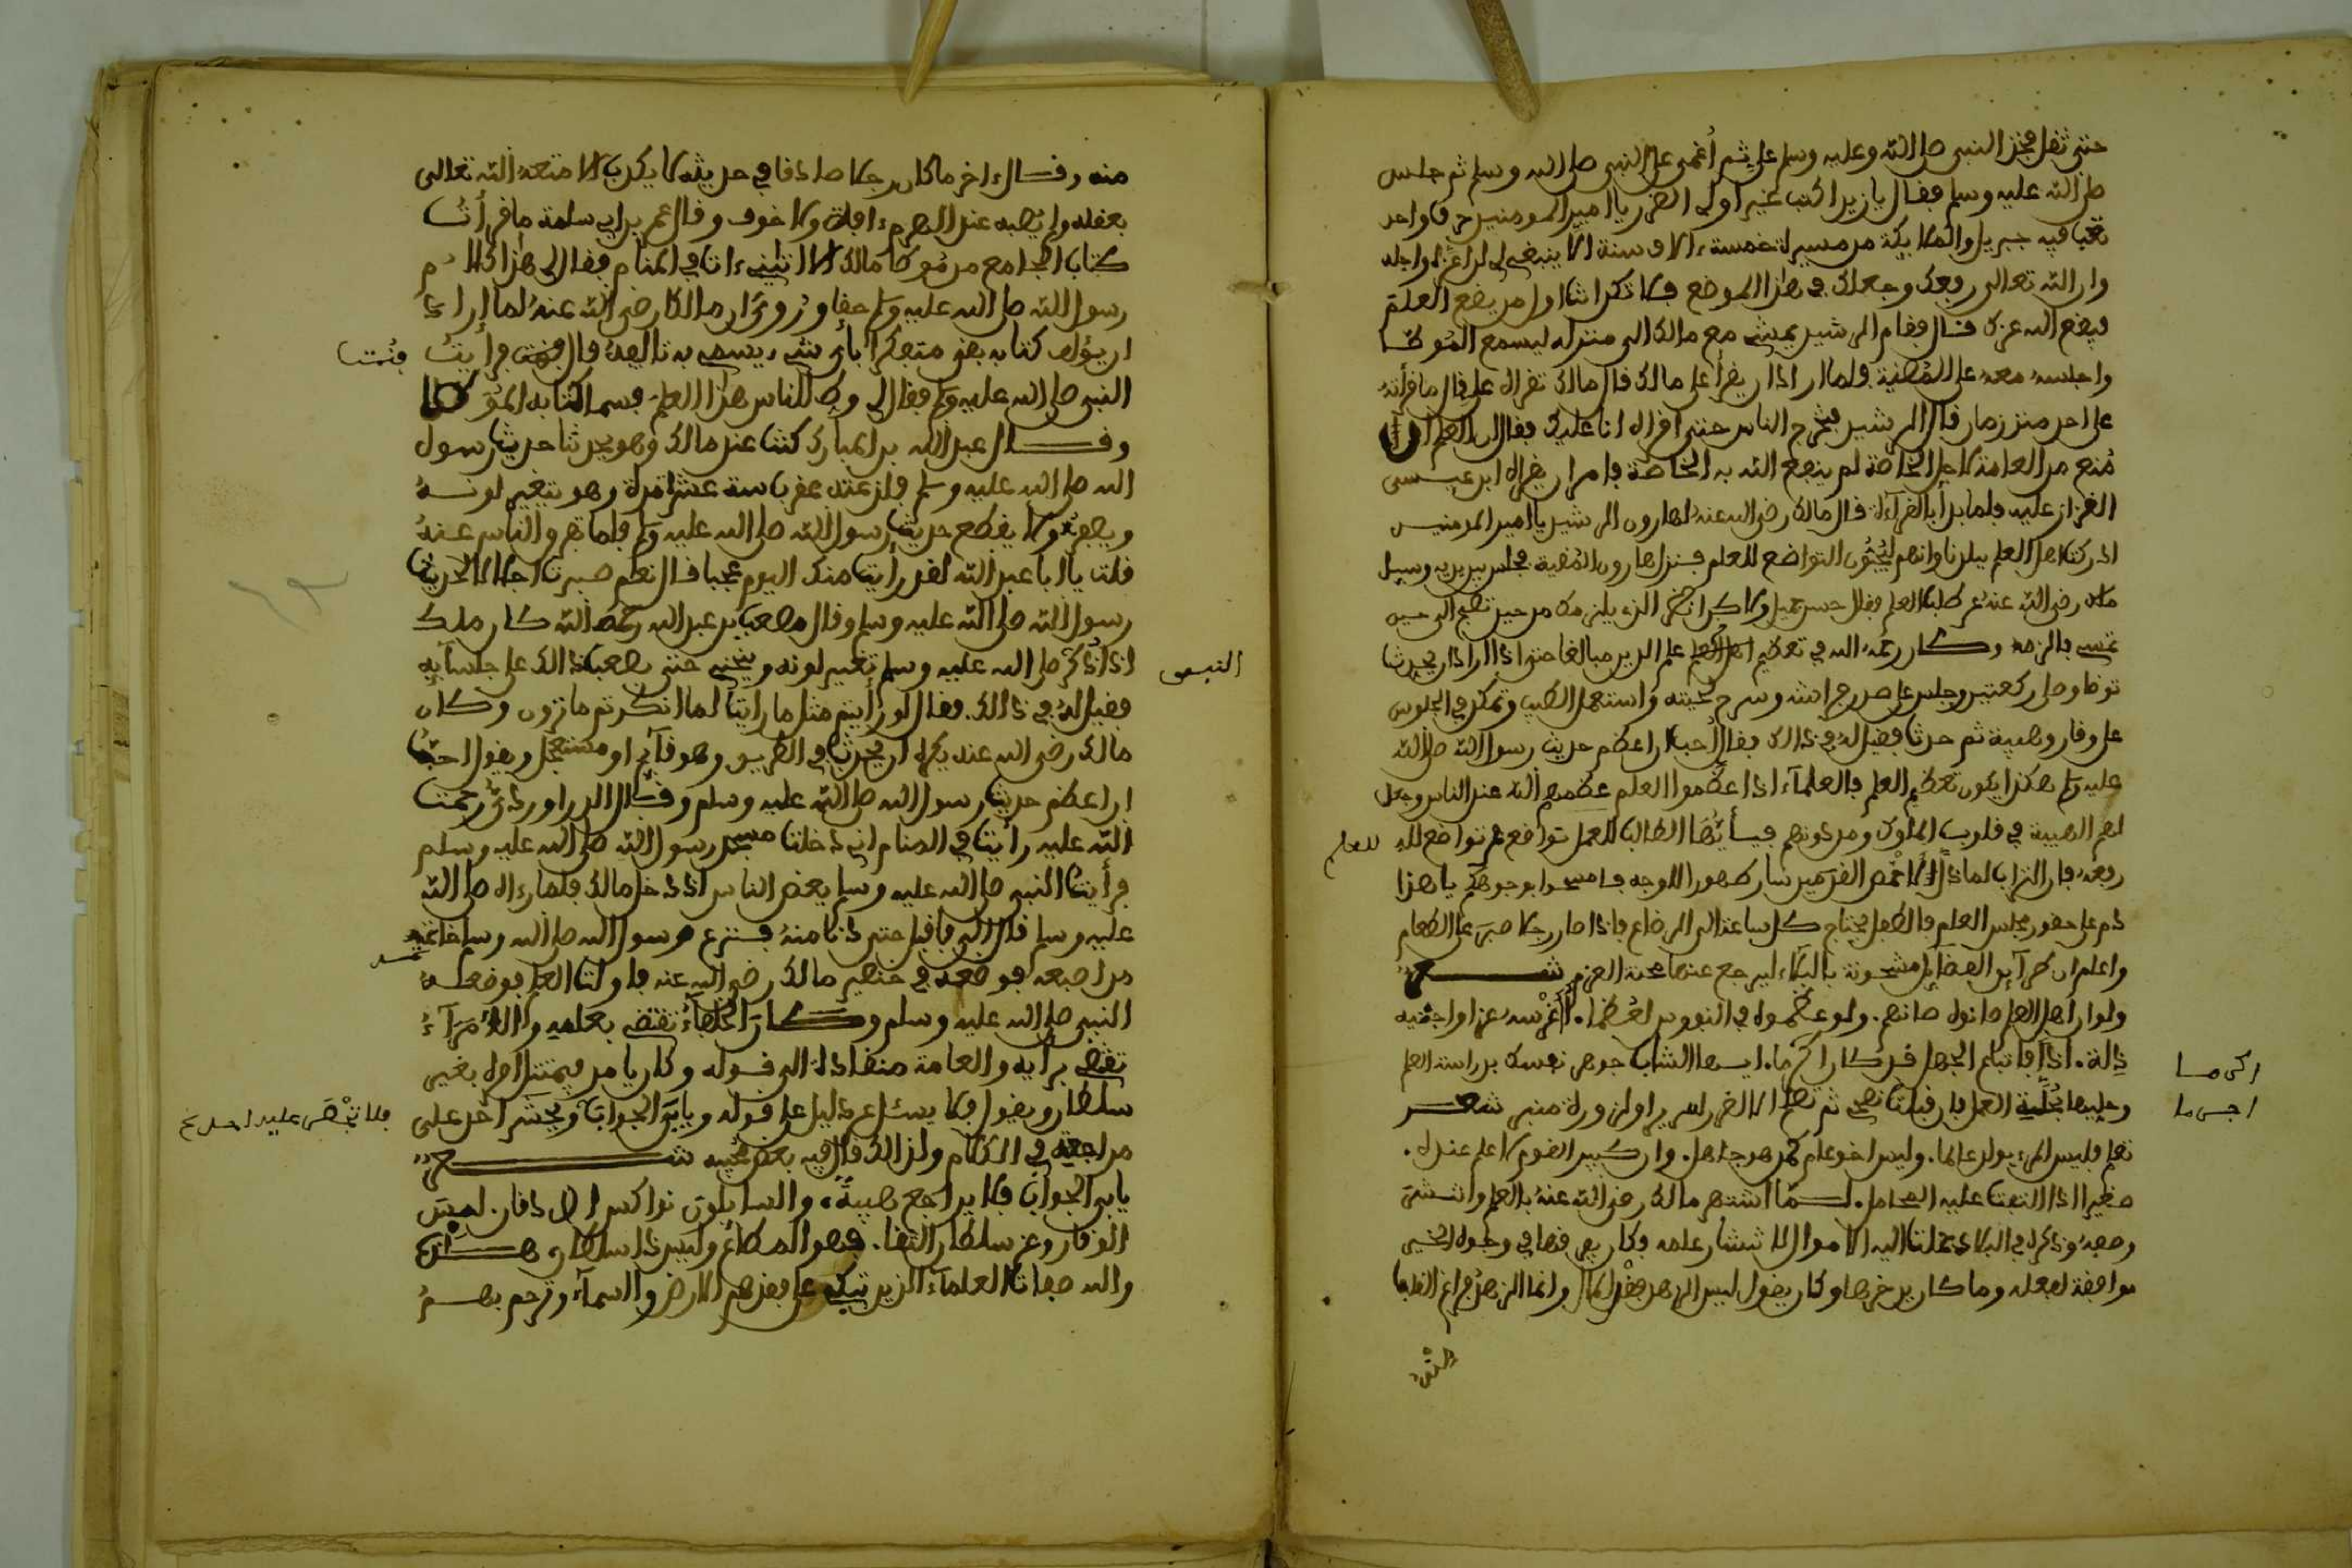 حتى ثقل فخذ النبي صلى الله وعليه وسلم علي ثم أغمي على النبي صلى الله وسلم ثم جلس
صلى الله عليه وسلم فقال يا زيد اكتب غير أولي الضرر يا أمير المومنين حرف واحد
تعب فيه جبريل والملايكة من مسيرة خمسة ءالاف سنة ألا ينبغي لي ان اعزه واجله
وان الله تعالى رفعك وجعلك في هذا الموضع فلا تكن انت اول من يضع العلم
فيضع الله عزك فال فقام الرشيد يمشي مع مالك الى منزله ليسمع الموطا
واجلسه معه على المنصة فلما اراد ان يقرأ على مالك قال مالك تقراه علي قال ما قرأته
على احد منذ زمان قال الرشيد فيخرج الناس حتى اقراه انا عليك فقال ان العلم اذا
مُنع من العامة لاجل الخاصة لم ينفع الله به الخاصة فامر ان يقراه ابن عيسى
القزاز عليه فلما بدأ بالقرآءة قال مالك رضي الله عنه لهارون الرشيد يا امير المومنين
ادركت اهل العلم ببلدنا وانهم ليحبون التواضع للعلم فنزل هارون عن المنصة فجلس بين يديه وسيل
مالك رضي الله عنه عن طلب العلم فقال حسن جميل ولاكن انظر الذي يلزمك من حين تصبح الى حين
تمسي فالزمه وكان رحمه الله في تعظيم علم الدين مبالغا حتى اذا اراد ان يحدث
توضا وصلى ركعتين وجلس على صدر فراشه وسرح لحيته واستعمل الطيب وتمكن في الجلوس
على وقار وهيبة ثم حدث فقيل له في ذالك فقال أحب ان اعظم حديث رسول الله صلى الله
عليه وسلم هكذا يكون تعظيم العلم فالعلمآء اذا عظموا العلم عظمهم الله عند الناس وجعل
لهم الهيبة في قلوب الملوك ومن دونهم فيأيها الطالب للعمل تواضع فمن تواضع لله
للعلم
رفعه فان التراب لما ذل لاخمص القدمين صار طهورا للوجه فامسحوا بوجوهكم يا هذا
دم على حضور مجلس العلم فالطفل يحتاج كل ساعة الى الرضاع فاذا صار رجلا صبر على الطعام
واعلم ان طرآيق الفضايل مشحونة بالبلاء ليرجع عنها مخنث العزم شعر
ولو ان اهل العلم صانوه صانهم. ولو عظموه في النفوس لعظما. أأغرسه عزا واجنيه
ذلة. اذا فاتباع الجهل قد كان احزما. ايها الشاب جوهر نفسك بدراسة العلم
اكرما
وحليها بحلية العمل فان قبلت نصحي لم تصلح الا لصدر سرير او لذروة منبر شعر
احزما
تعلم فليس المرء يولد عالما. وليس اخو علم كمن هو جاهل. وان كبير القوم لا علم عنده.
صغير اذا التفت عليه المحافل. لما اشتهر مالك رضي الله عنه بالعلم وانتشر
وصفه وذكره في البلاد حملت اليه الاموال لانتشار علمه فكان يفرقها في وجوه الخير
موافقة لفعله وما كان يدخرها وكان يقول ليس الزهد فقد المال وانما الزهد فراغ القلب
منه
منه وقال ءاخر ما كان رجلا صادقا في حديثه لا يكذب الا متعه الله تعالى
بعقله ولم يصبه عند الهرم ءافة ولا خوف وقال عمر بن ابي سلمة ما قرأت
كتاب الجامع من موطا مالك الا اتاني ءات في المنام فقال لي هذا كلام
رسول الله صلى الله عليه وسلم حقا وروي ان مالكا رضي الله عنه لما اراد
ان يؤلف كتابه بقي متفكرا باي شيء يسمي به تاليفه قال فنمت فرأيت
فنمت
النبي صلى الله عليه وسلم فقال لي وطئ للناس هذا العلم فسمى كتابه الموطا
وقال عبد الله بن المبارك كنت عند مالك وهو يحدثنا حديث رسول
الله صلى الله عليه وسلم فلدغته عقرب ستة عشر مرة وهو يتغير لونه
ويصفر ولا يقطع حديث رسول الله صلى الله عليه وسلم فلما تفرق الناس عنه
قلت يا ابا عبد الله لقد رايت منك اليوم عجبا فال نعم صبرت اجلالا لحديث
رسول الله صلى الله عليه وسلم وقال مصعب بن عبد الله رحمه الله كان ملك
اذا ذكر صلى الله عليه وسلم تغير لونه وينحني حتى يصعب ذالك على جلسآيه
النبي
فقيل له في ذالك فقال لو رأيتم مثل ما رايت لما انكرتم ما ترون وكان
مالك رضي الله عنه يكره ان يحدث في الطريق وهو قآيم او مستعجل ويقول احب
ان اعظم حديث رسول الله صلى الله عليه وسلم وقال الدراوردي رحمت
الله عليه رايت في المنام اني دخلت مسجد رسول الله صلى الله عليه وسلم
فرأيت النبي صلى الله عليه وسلم يعظ الناس اذ دخل مالك فلما رءاه صلى الله
عليه وسلم قال الي فاقبل حتى دنا منه فنزع رسول الله صلى الله وسلم خاتمه
من اصبعه فوضعه في خنصر مالك رضي الله عنه فاولت العلم فوضعه
النبي صلى الله عليه وسلم وكان الخلفاء تقتدي بعلمه والأمرآء
تقتضي برايه والعامة منقادة الى قوله وكان يامر فيمتثل امره بغير
سلطان ويقول فلا يسئل عن دليل على قوله ويابى الجواب ولا يجسر احد على
فلا تجتري عليه احد صح
مراجعته في الكلام ولذالك قال فيه بعض محبيه شعر
يابى الجواب فلا يراجع هيبة. والسايلون نواكس الاذقان. ادب
الوقار وعز سلطان التقا. فهو المطاع وليس ذا سلطان هذه
والله صفات العلمآء الذين تبكي على فقدهم الارض والسمآء وترحم بهم